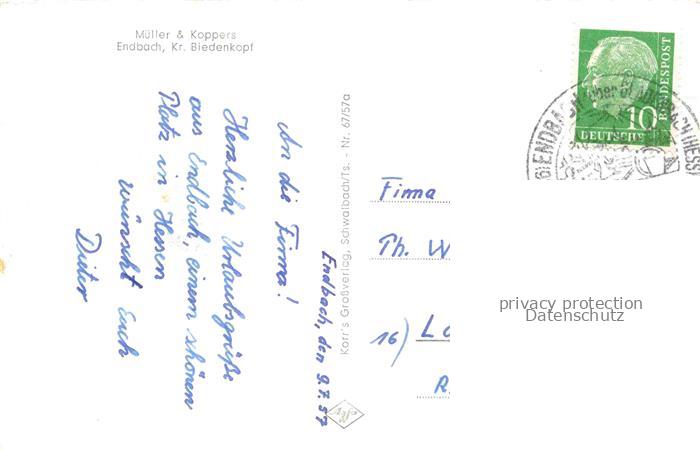 Müller & Koppers
Endbach, Kr. Biedenkopf
Endbach, den 9.7.57
An die Firma!
Herzliche Urlaubsgrüße
aus Endbach, einem schönen
Platz in Hessen
wünscht Euch
Dieter
Korr's Großverlag, Schwalbach/Ts. - Nr. 67/57a
10
DEUTSCHE
BUNDESPOST
ENDBACH
Firma
Th. W
16) L
R
privacy protection
Datenschutz